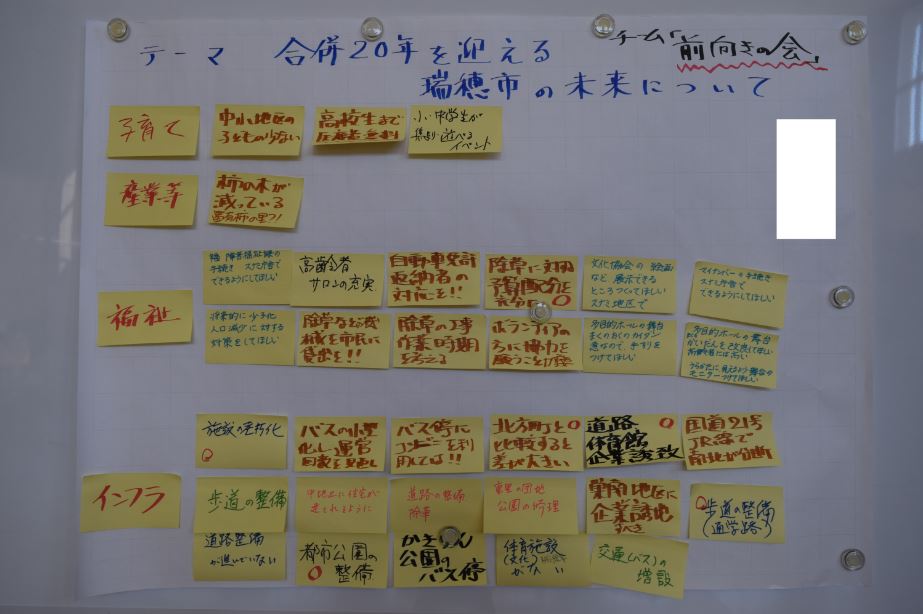 テーマ 合併20年を迎える
瑞穂市の未来について
チーム「前向きの会」
子育て
中小地区の
子どもの少ない
高校生まで
小・中学生が
集まり遊べる
イベント
産業等
柿の木が
減っている
富有柿の里づくり
福祉
障害福祉課の
手続き スナミ庁舎で
できるようにしてほしい
高齢者
サロンの充実
自動車免許
返納者の
対応を!!
除草に対する
文化協会の 絵画
など 展示できる
ところつくってほしい
スナミ地区で
マイナンバーの手続き
スナミ庁舎で
できるようにしてほしい
将来的に少子化
人口減少に対する
対策をしてほしい
除草などの機
械を市民に
貸出を!!
除草の工事
作業時期
を考える
ボランティアの
方に協力を
願うことが必要
多目的ホールの舞台
急なので、手すりを
つけてほしい
多目的ホールの舞台
かいだんを改良してほしい
高齢者には高い
モニターつけてほしい
インフラ
施設の老朽化
バスの小型
化し運営
回数を見直し
バス停に
コンビニを利
用しては!!
北方町と
比較すると
差が大きい
道路
体育館
企業誘致
国道21号
JR等で
南北が分断
歩道の整備
市地区に住宅が
道路の整備
除草
公園の修理
巣南地区に
企業誘致
すべき
歩道の整備
(通学路)
道路整備
が進いでいない
都市公園の
整備
かきりん
公園の
バス停
体育施設
(文化)
がない
交通(バス)の
増設